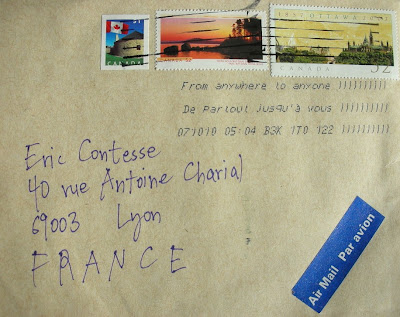 51
CANADA
CANADA 52
1857 OTTAWA 2007
CANADA
52
From anywhere to anyone )))))))))))
De partout jusqu'à vous ))))))))))
071010 05:04 B3K 1T0 122 )))))))))))
Eric Contesse
40 rue Antoine Charial
69003 Lyon
FRANCE
Air Mail Par avion